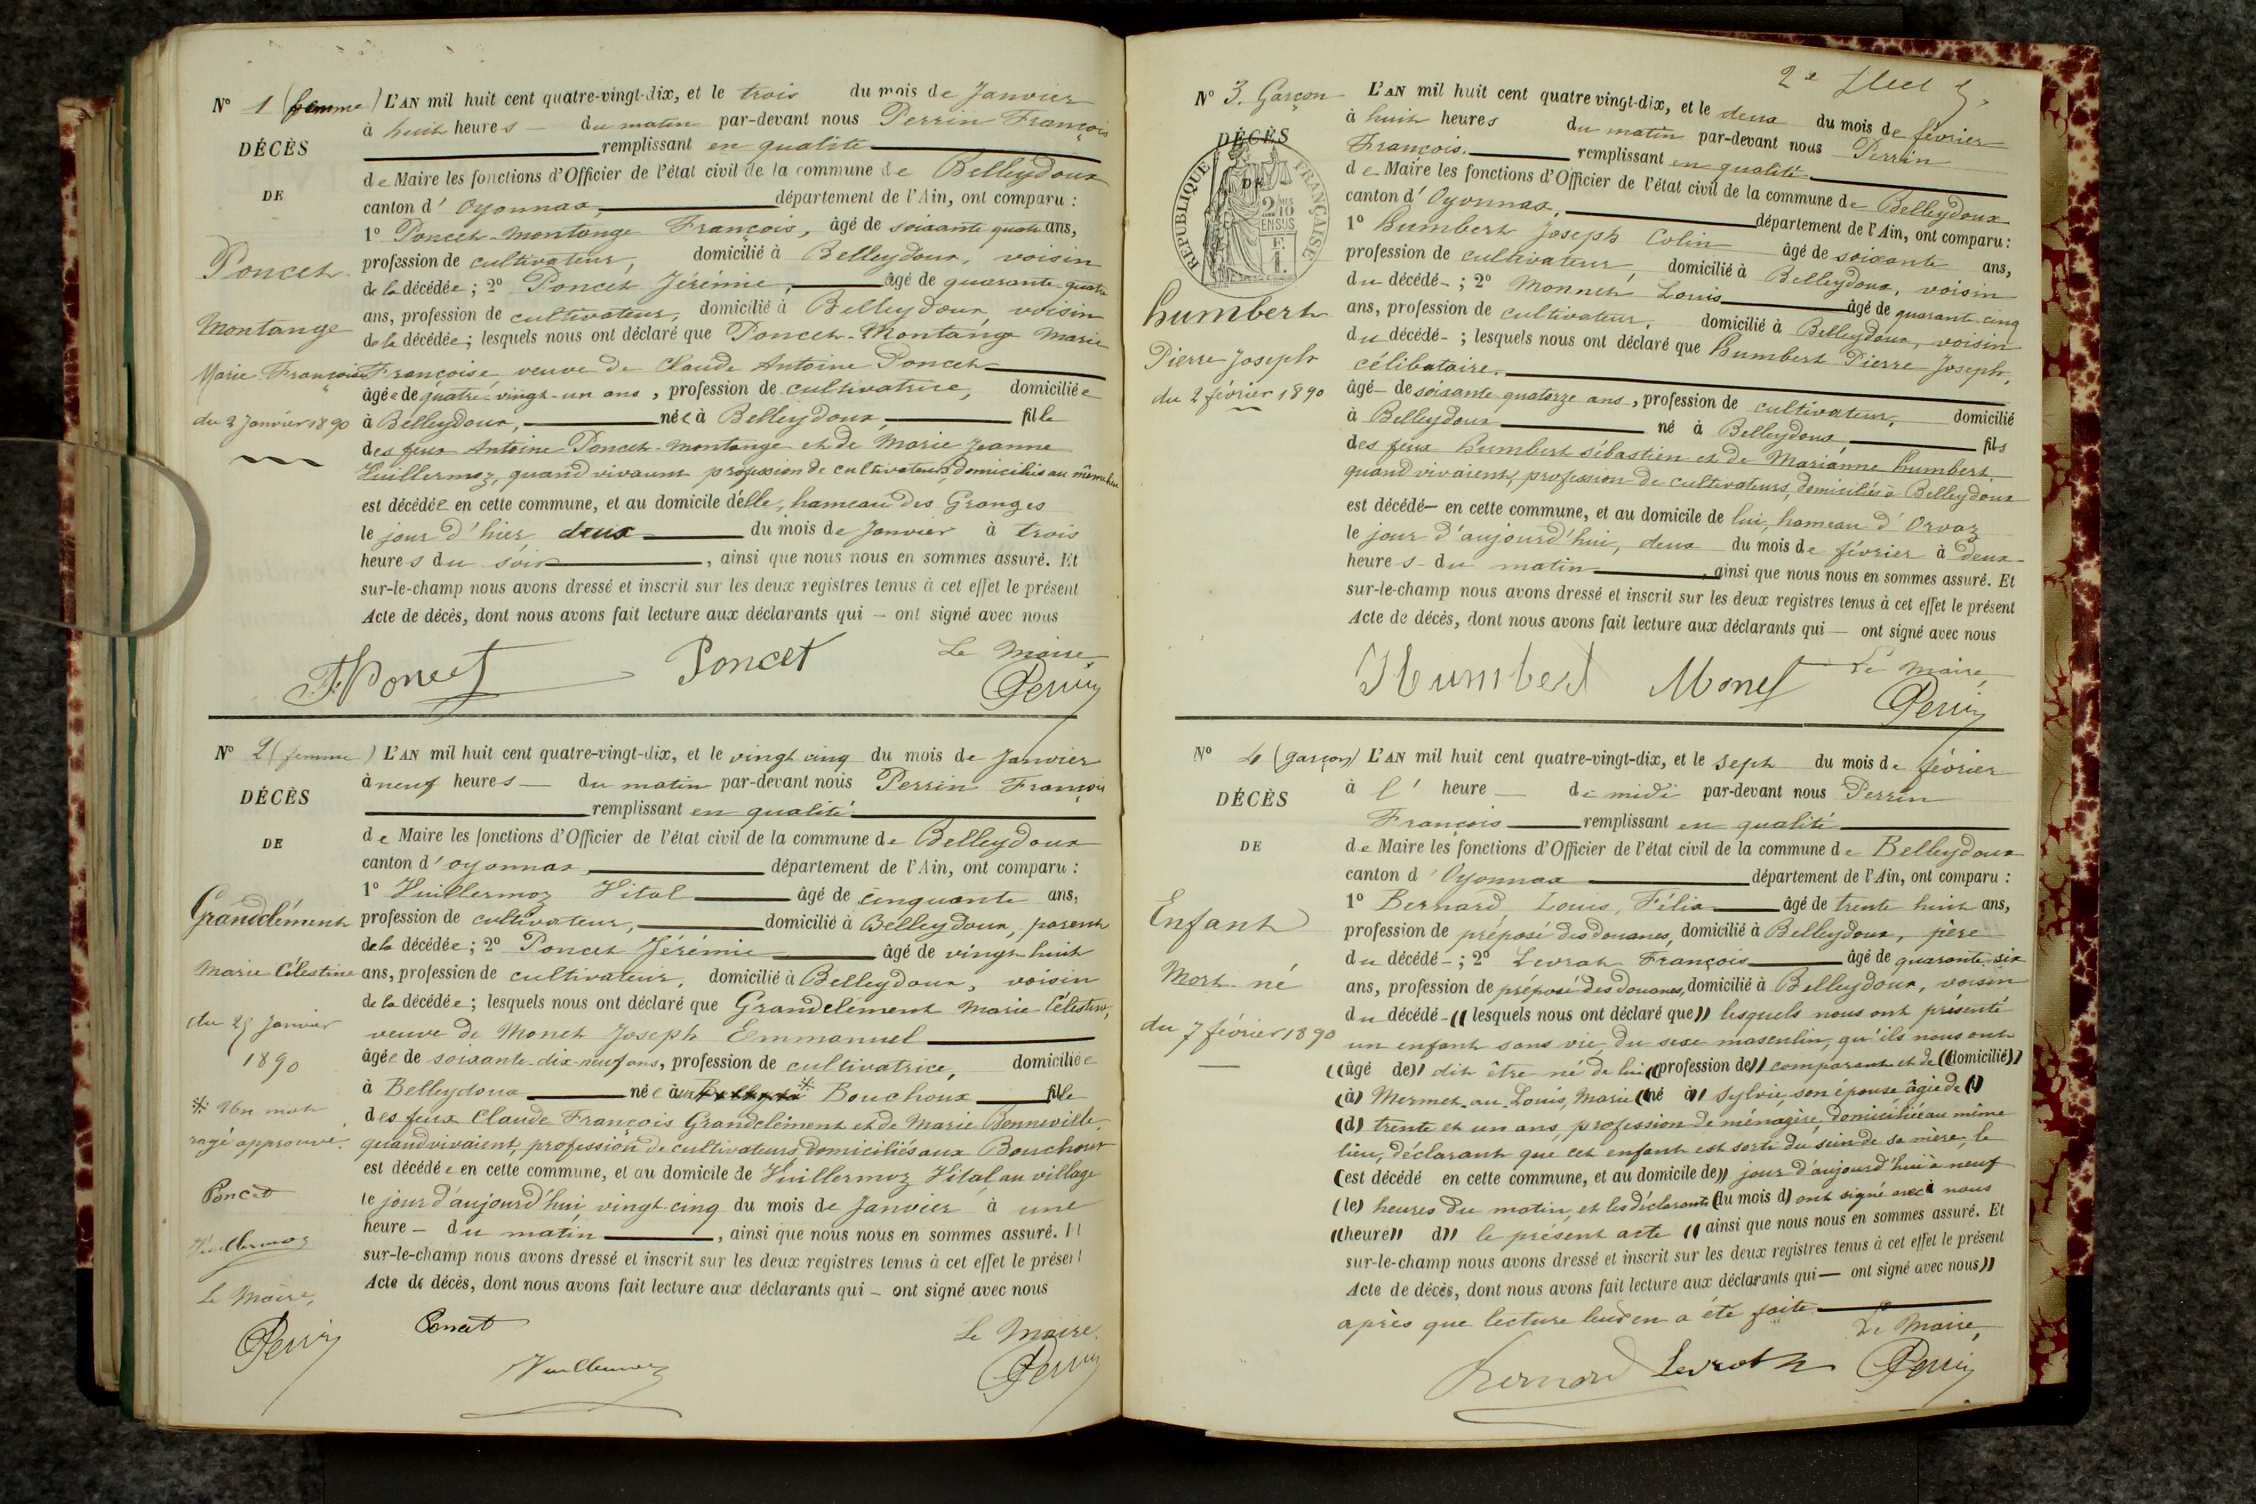 N° 1 (femme) L'AN mil huit cent quatre-vingt-dix, et le trois du mois de Janvier
à huit heures du matin par-devant nous Perrin François
DÉCÈS
remplissant en qualité
de Maire les fonctions d'Officier de l'état civil de la commune de Belleydoux
DE
canton d'Oyonnax, département de l'Ain, ont comparu :
1° Poncet-Montange François, âgé de soixante quatre ans,
Poncet
profession de cultivateur, domicilié à Belleydoux, voisin
de la décédée ; 2° Poncet Jérémie, âgé de quarante quatre
ans, profession de cultivateur, domicilié à Belleydoux, voisin
Montange
de la décédée ; lesquels nous ont déclaré que Poncet-Montange Marie
Marie Françoise
Françoise veuve de Claude Antoine Poncet
âgée de quatre-vingt-un ans, profession de cultivatrice, domiciliée
du 2 Janvier 1890
à Belleydoux, née à Belleydoux, fille
des feux Antoine Poncet-Montange et de Marie Jeanne
Vuillermoz, quand vivaient profession de cultivateurs, domiciliés au même lieu
est décédée en cette commune, et au domicile d'elle, hameau des Granges
le jour d'hier deux du mois de Janvier à trois
heures du soir, ainsi que nous nous en sommes assuré. Et
sur-le-champ nous avons dressé et inscrit sur les deux registres tenus à cet effet le présent
Acte de décès, dont nous avons fait lecture aux déclarants qui – ont signé avec nous
Le Maire,
F Poncet Poncet Perrin
N° 2 (femme) L'AN mil huit cent quatre-vingt-dix, et le vingt cinq du mois de Janvier
à neuf heures du matin par-devant nous Perrin François
DÉCÈS
remplissant en qualité
DE
de Maire les fonctions d'Officier de l'état civil de la commune de Belleydoux
canton d'Oyonnax département de l'Ain, ont comparu :
1° Vuillermoz Vital âgé de cinquante ans,
Grandclément
profession de cultivateur, domicilié à Belleydoux, parent
de la décédée ; 2° Poncet Jérémie âgé de vingt huit
Marie Célestine
ans, profession de cultivateur, domicilié à Belleydoux, voisin
de la décédée ; lesquels nous ont déclaré que Grandclément Marie Célestine,
du 25 Janvier
1890
veuve de Monet Joseph Emmanuel
âgée de soixante-dix-neuf ans, profession de cultivatrice, domiciliée
à Belleydoux née à * Bouchoux fille
* Un mot
rayé approuvé.
des feux Claude François Grandclément et de Marie Bonneville,
quand vivaient, profession de cultivateurs, domiciliés aux Bouchoux
est décédée en cette commune, et au domicile de Vuillermoz Vital au village
Poncet
le jour d'aujourd'hui vingt-cinq du mois de Janvier à une
heure – du matin, ainsi que nous nous en sommes assuré. Et
Vuillermoz
sur-le-champ nous avons dressé et inscrit sur les deux registres tenus à cet effet le présent
Acte de décès, dont nous avons fait lecture aux déclarants qui – ont signé avec nous
Le Maire,
Perrin
Poncet
Le Maire.
Vuillermoz Perrin
N° 3. Garçon L'AN mil huit cent quatre vingt-dix, et le deux du mois de février
à huit heures du matin par-devant nous Perrin
DÉCÈS
François. remplissant en qualité
RÉPUBLIQUE FRANÇAISE
DE
de Maire les fonctions d'Officier de l'état civil de la commune de Belleydoux
canton d'Oyonnax, département de l'Ain, ont comparu :
1° Humbert Joseph Colin âgé de soixante ans,
profession de cultivateur, domicilié à Belleydoux, voisin
du décédé ; 2° Monnet Louis âgé de quarante-cinq
Humbert
ans, profession de cultivateur, domicilié à Belleydoux, voisin
du décédé ; lesquels nous ont déclaré que Humbert Pierre Joseph,
Pierre Joseph
célibataire.
du 2 février 1890
âgé de soixante quatorze ans, profession de cultivateur, domicilié
à Belleydoux né à Belleydoux, fils
des feux Humbert Sébastien et de Marianne Humbert
quand vivaient, profession de cultivateurs, domiciliés à Belleydoux
est décédé en cette commune, et au domicile de lui, hameau d'Orvaz
le jour d'aujourd'hui, deux du mois de février à deux
heures du matin, ainsi que nous nous en sommes assuré. Et
sur-le-champ nous avons dressé et inscrit sur les deux registres tenus à cet effet le présent
Acte de décès, dont nous avons fait lecture aux déclarants qui – ont signé avec nous
Le Maire,
Humbert Monet Perrin
N° 4 (garçon) L'AN mil huit cent quatre-vingt-dix, et le sept du mois de février
à l' heure de midi par-devant nous Perrin
DÉCÈS
François remplissant en qualité
DE
de Maire les fonctions d'Officier de l'état civil de la commune de Belleydoux
canton d'Oyonnax département de l'Ain, ont comparu :
1° Bernard Louis, Félix âgé de trente huit ans,
Enfant
profession de préposé des douanes, domicilié à Belleydoux, père
du décédé ; 2° Levrat François âgé de quarante-six
Mort-né
ans, profession de préposé des douanes, domicilié à Belleydoux, voisin
du décédé ((lesquels nous ont déclaré que)) lesquels nous ont présenté
du 7 février 1890
un enfant sans vie, du sexe masculin, qu'ils nous ont
((âgé de)) dit être né de lui ((profession de)) comparant et de ((domicilié))
(à) Mermet-au-Louis, Marie (né à) Sylvie, son épouse âgée de
(d) trente et un ans, profession de ménagère, domiciliée au même
lieu, déclarant que cet enfant est sorti du sein de sa mère, le
(est décédé en cette commune, et au domicile de)) jour d'aujourd'hui à neuf
(le) heures du matin, et les déclarants (du mois d) ont signé avec à nous
((heure)) d)) le présent acte (( ainsi que nous nous en sommes assuré. Et
sur-le-champ nous avons dressé et inscrit sur les deux registres tenus à cet effet le présent
Acte de décès, dont nous avons fait lecture aux déclarants qui – ont signé avec nous))
après que lecture leur en a été faite
Le Maire,
Bernard Levrat Perrin